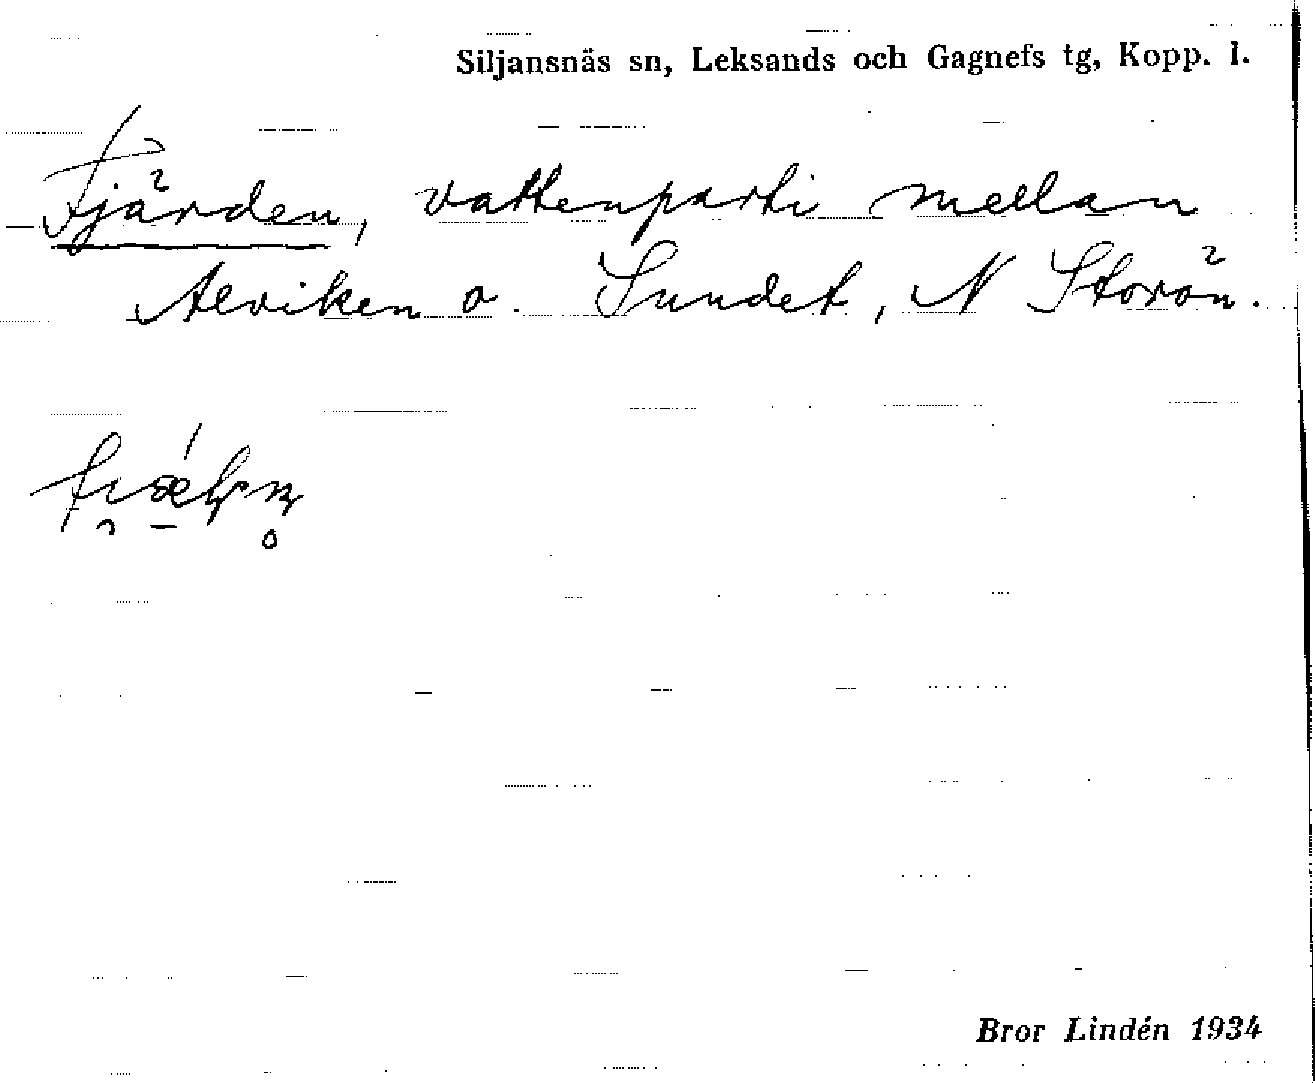 Siljansnäs sn, Leksands och Gagnefs tg, Kopp. l.
Fjärden, vattenparti mellan
Alviken o. Sundet, N Storön.
Bror Lindén 1934